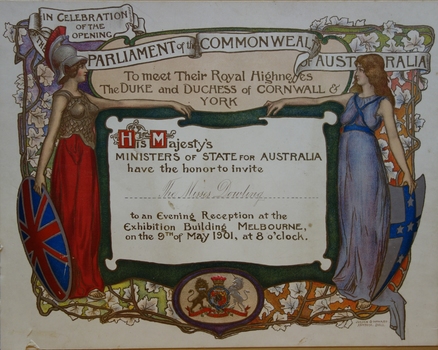 IN CELEBRATION
OF THE
OPENING
OF THE
PARLIAMENT of the COMMONWEALTH OF AUSTRALIA
To meet Their Royal Highnesses
The DUKE and DUCHESS of CORNWALL &
YORK
His Majesty's
MINISTERS OF STATE FOR AUSTRALIA
have the honor to invite
The Misses Dowling
to an Evening Reception at the
Exhibition Building MELBOURNE,
on the 9TH of MAY 1901, at 8 o'clock.